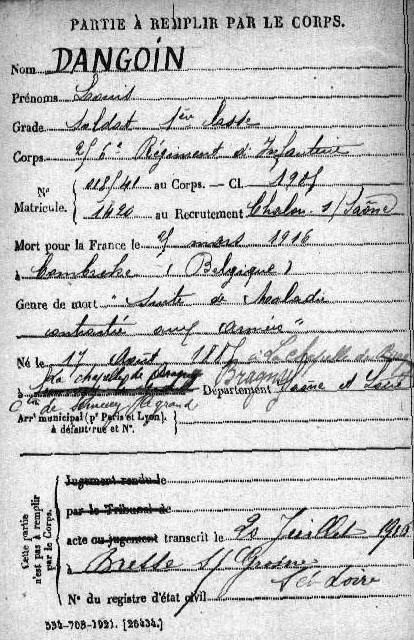 PARTIE À REMPLIR PAR LE CORPS.
Nom DANGOIN
Prénoms Louis
Grade Soldat 1ère classe
Corps 56e Régiment d'Infanterie
No Matricule. au Corps. — Cl. 1905
1420 au Recrutement Chalon s/Saône
Mort pour la France le mars 1916
à (Belgique)
Genre de mort "Suite de Maladie
contractée aux Armées"
Né le 17 Août à La Chapelle de
La Chapelle de Bragny Département Saône et Loire
Con de Sennecey le grand
Arrt municipal (pr Paris et Lyon), à défaut rue et No.
Cette partie n'est pas à remplir par le Corps.
Jugement rendu le
par le Tribunal de
acte ou jugement transcrit le 20 Juillet
à Bresse s/ Grosne
S et Loire
No du registre d'état civil
534-708-1921. [26434.]